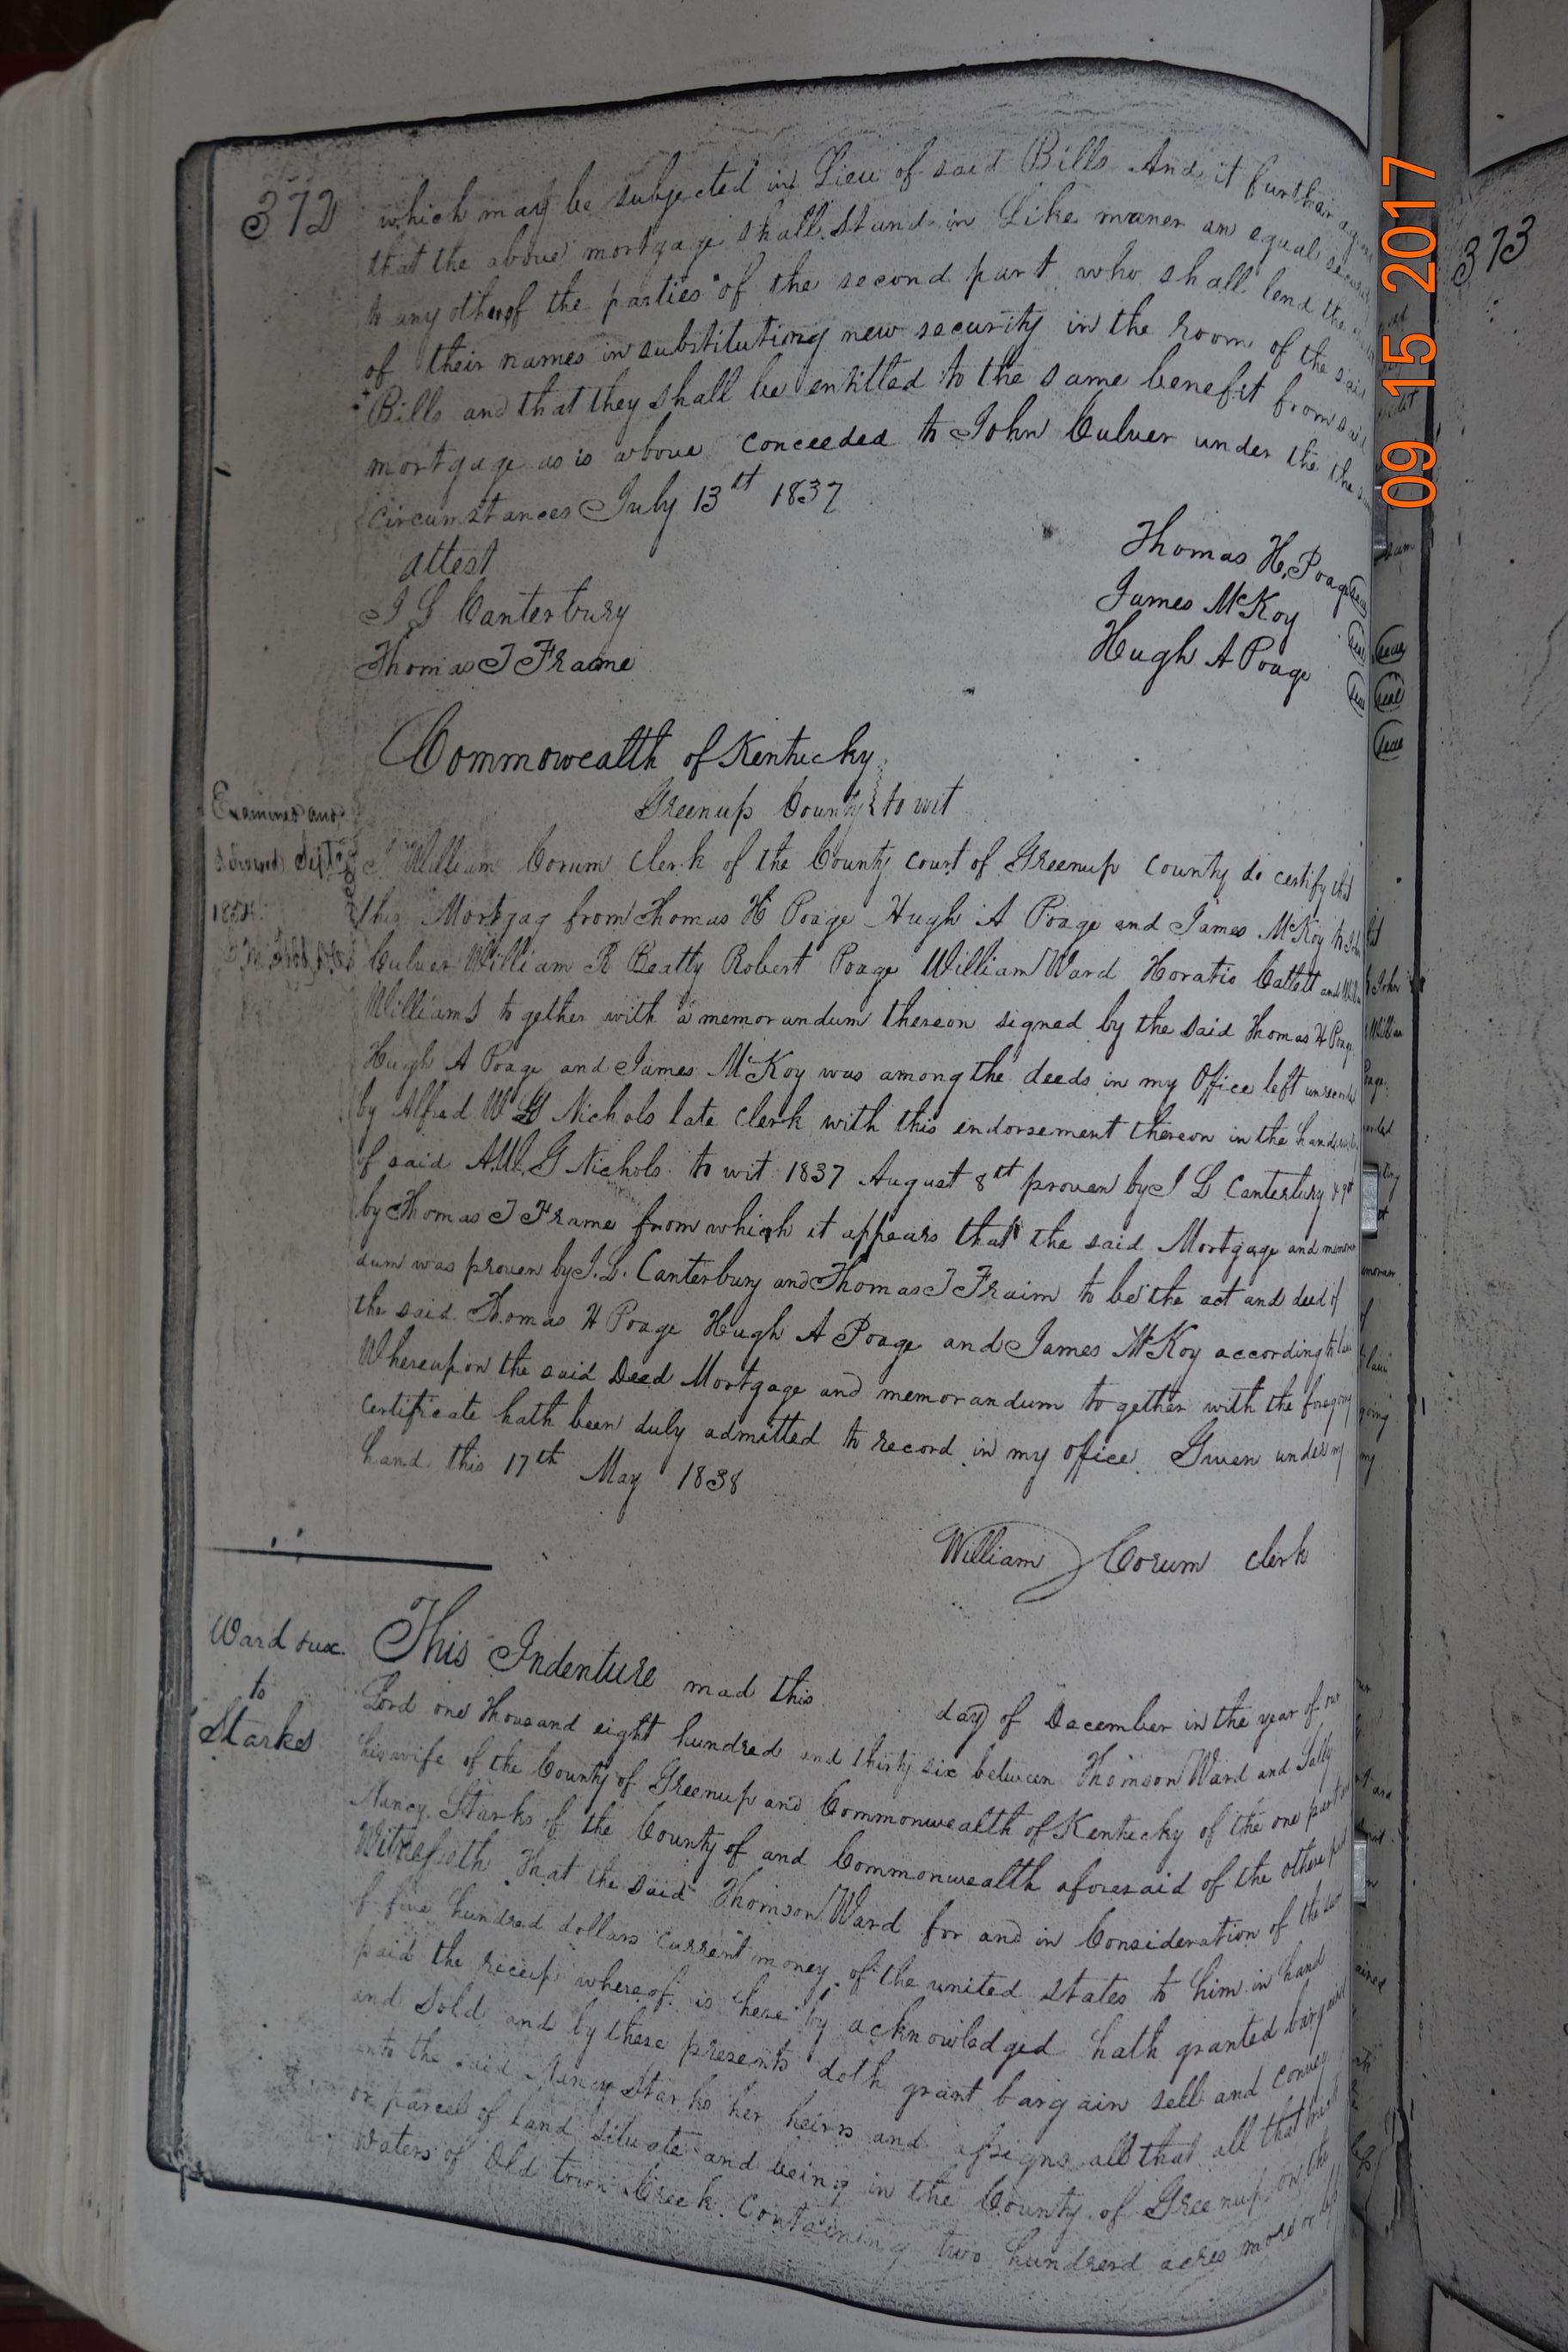 372
which may be subjected in Lieu of said Bills And it further
that the above mortgage shall stand in Like maner an equal
to any other of the parties of the second part who shall lend the
of their names in substituting new security in the room of the said
Bills and that they shall be entitled to the same benefit from said
mortgage as is above conceeded to John Culver under the the
Circumstances July 13th 1837
attest
J L Canterbury
Thomas J Frame
Thomas H. Poage seal
James McKoy seal
Hugh A Poage seal
Commowealth of Kentucky
Greenup County to wit
Examined and
Sept
I William Corum Clerk of the County Court of Greenup County do certify that
this Mortgag from Thomas H Poage Hugh A Poage and James McKoy to John
Culver William R Beatty Robert Poage William Ward Horatio Catlett and
Williams to gether with a memorandum thereon signed by the said Thomas H Poage
Hugh A Poage and James McKoy was among the deeds in my Office left unrecorded
by Alfred W G Nichols late Clerk with this endorsement thereon in the
of said A.W. G Nichols to wit 1837 August 8th proven by J L Canterbury
by Thomas J Frame from which it appears that the said Mortgage and memoran
dum was proven by J. L. Canterbury and Thomas J Fraim to be the act and deed of
the said Thomas H Poage Hugh A Poage and James McKoy according to law
Whereupon the said Deed Mortgage and memorandum to gether with the foregoing
certificate hath been duly admitted to record in my office. Given under my
hand this 17th May 1838
William Corum Clerk
Ward & ux.
to
Starks
This Indenture mad this day of December in the year of our
Lord one thousand eight hundred and thirty six between Thomson Ward and Sally
his wife of the County of Greenup and Commonwealth of Kentucky of the one part
Nancy Starks of the County of and Commonwealth aforesaid of the other part
Witnesseth That the said Thomson Ward for and in Consideration of the sum
of five hundred dollars current money of the united states to him in hand
paid the where of is here by acknowledged hath granted bargained
and Sold and by these presents doth grant bargain sell and convey
unto the said Nancy Starks her heirs and assigns all that all that
or parcel of Land situate and being in the County of Greenup on the
waters of Old town Creek Containing two hundrerd acres more or less
373
09 15 2017